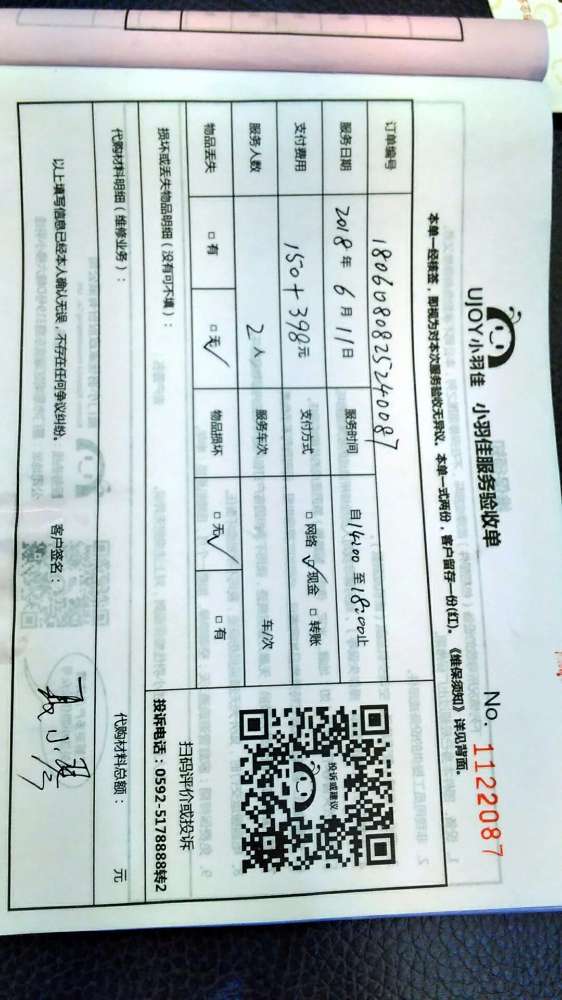 UJOY小羽佳 小羽佳服务验收单 No. 1122087
本单一经核签，即视为对本次服务验收无异议。本单一式两份，客户留存一份(红)。《维保须知》详见背面。
订单编号 1806080825240087
服务日期 2018年6月11日 服务时间 自14:00至18:00止
支付费用 150+398元 支付方式 □网络 ☑现金 □转账
服务人数 2人 服务车次 车/次
物品丢失 □有 □无✓ 物品损坏 □无✓ □有
投诉或建议
扫码评价或投诉
损坏或丢失物品明细（没有可不填）： 投诉电话：0592-5178888转2
代购材料明细（维修业务）： 代购材料总额： 元
以上填写信息已经本人确认无误，不存在任何争议纠纷。 客户签名：